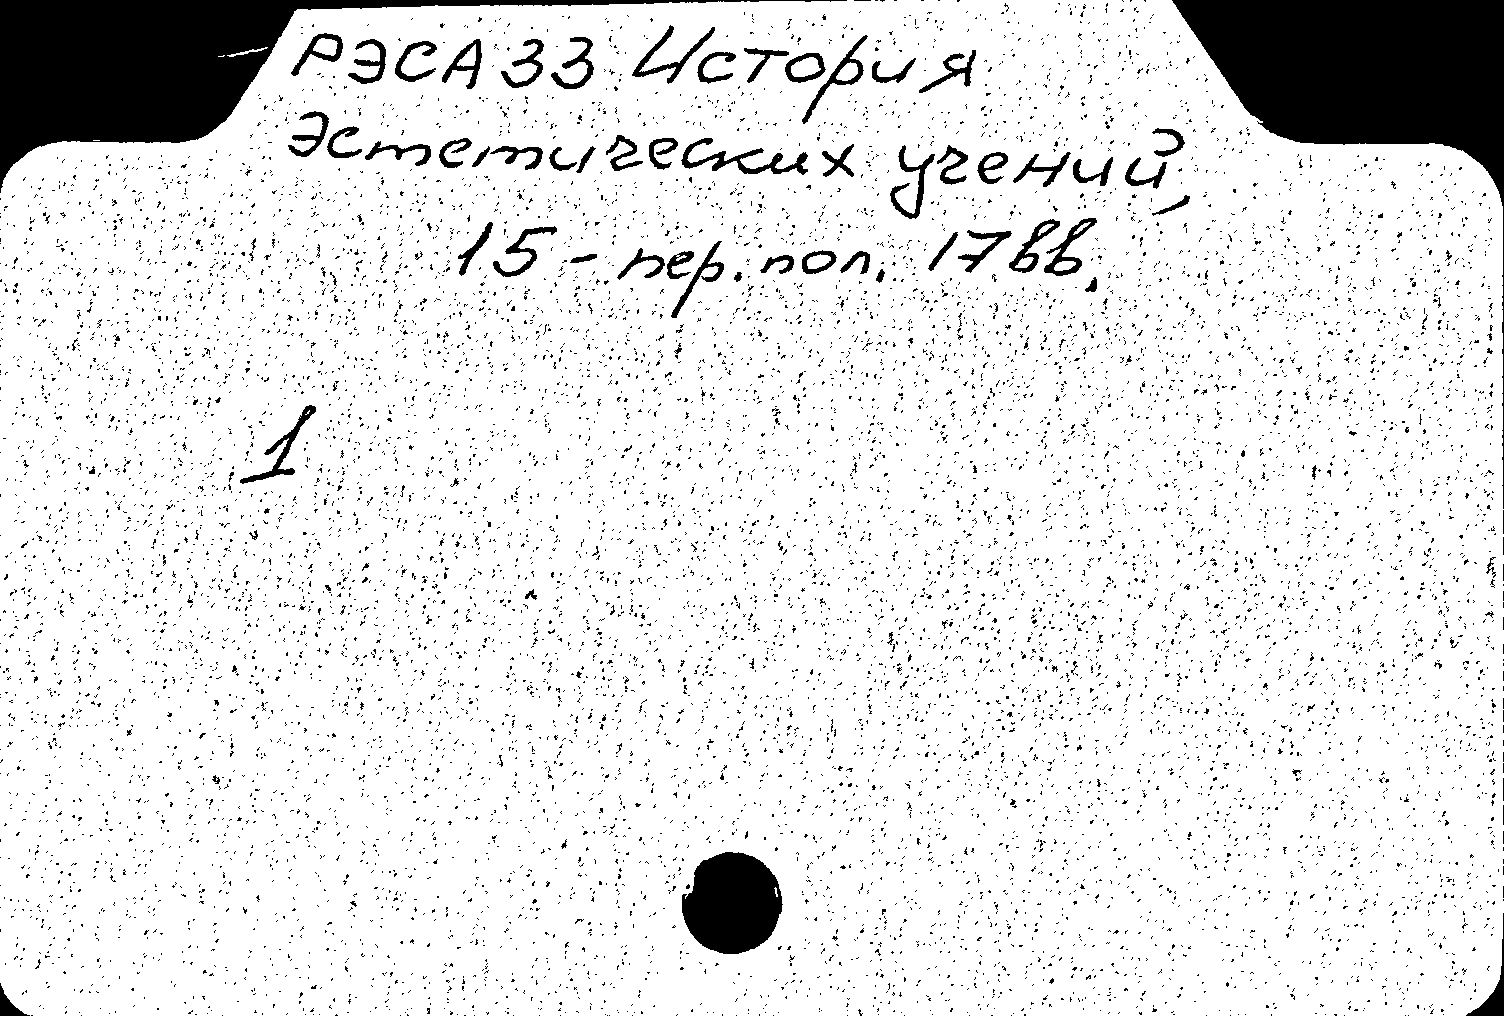 РЭСА 33 История
эстетических учений,
15 - пер. пол. 17 вв.
1